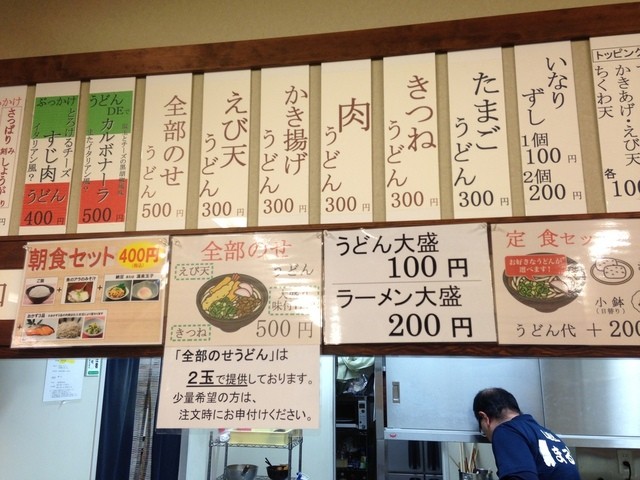 かけ
さっぱり
刻みしょうが
ぶっかけ
とろけるチーズ
すじ肉
イタリアン風？
うどん
400円
うどん
DE
カルボナーラ
500円
全部のせ
うどん
500円
えび天
うどん
300円
かき揚げ
うどん
300円
肉
うどん
300円
きつね
うどん
300円
たまご
うどん
300円
いなり
ずし
1個
100円
2個
200円
トッピング
かきあげ・えび天
ちくわ天
各
100
朝食セット 400円
全部のせ
えび天
うどん
きつね
500円
「全部のせうどん」は
2玉で提供しております。
少量希望の方は、
注文時にお申付けください。
うどん大盛
100円
ラーメン大盛
200円
定食セッ
お好きなうどんが
選べます！
小鉢
(日替り)
うどん代 ＋200